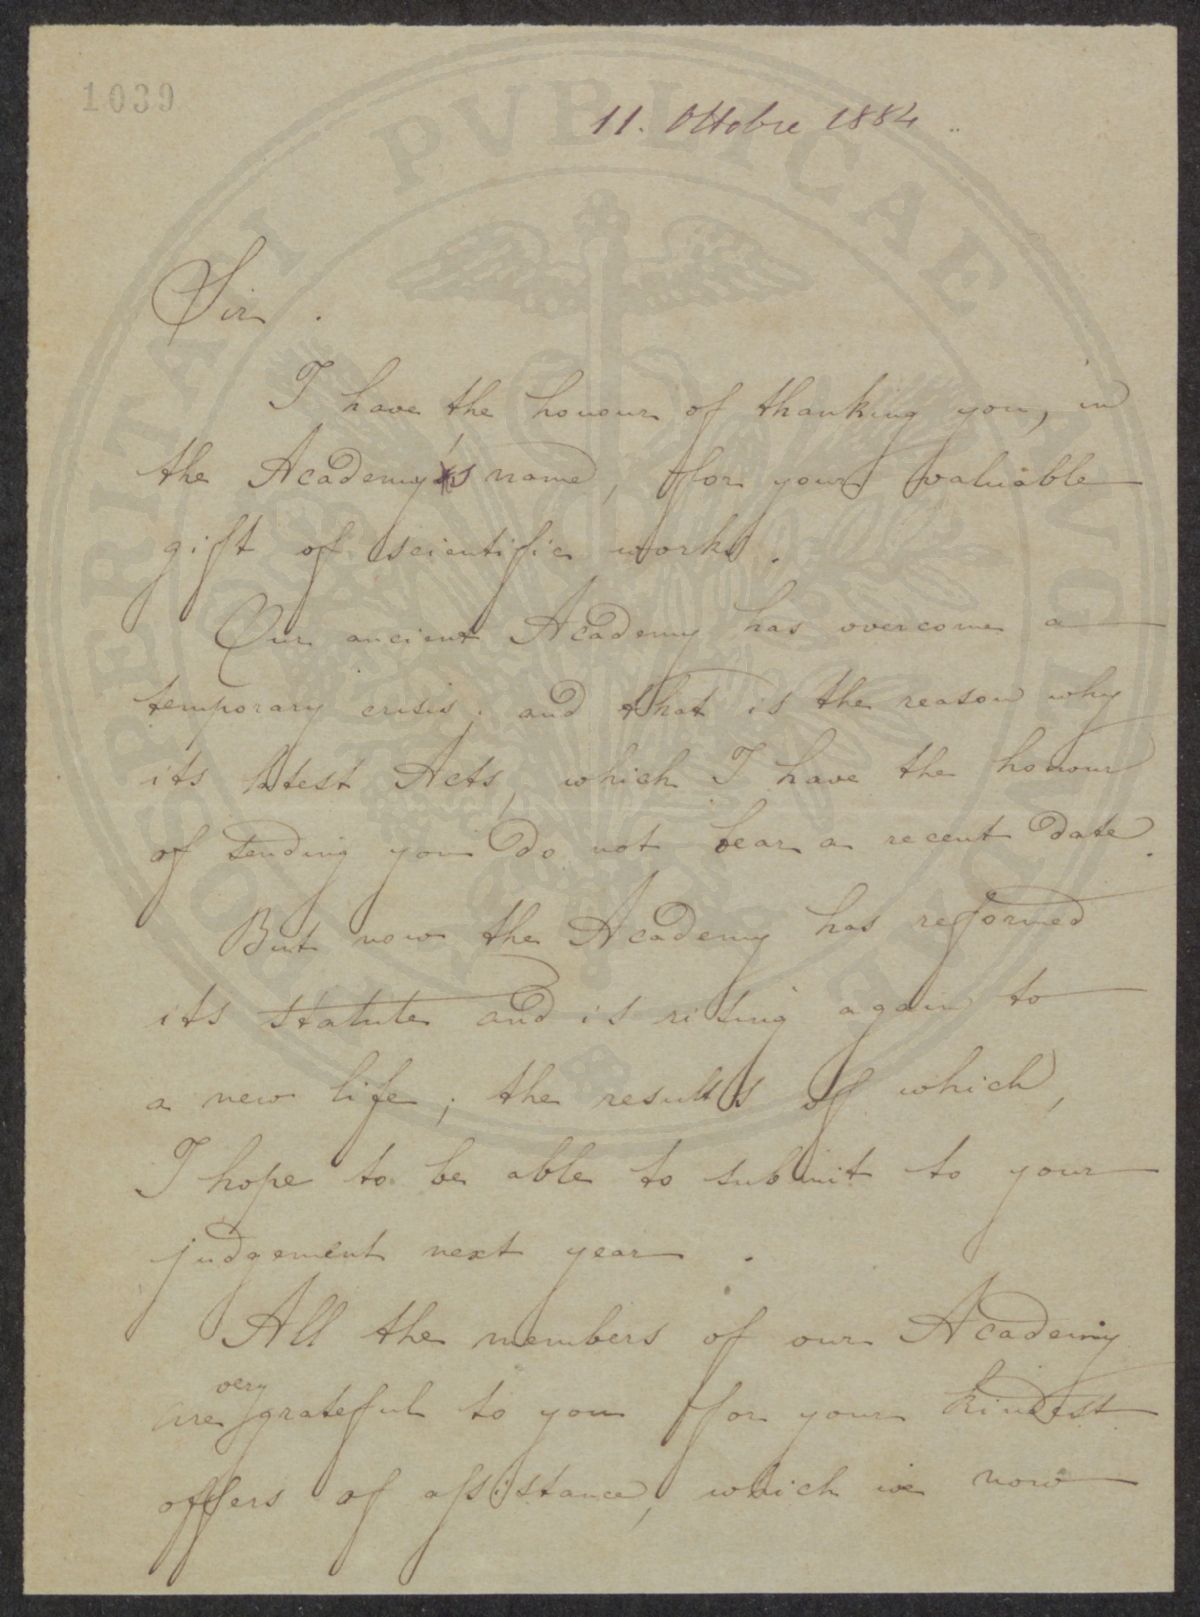 1039
11. Ottobre 1884
Sir.
I have the honour of thanking you, in
the Academy's name, for your valuable
gift of scientific works.
Our ancient Academy has overcome a
temporary crisis, and that is the reason why
its latest Acts, which I have the honour
of sending you do not bear a recent date.
But now the Academy has reformed
its statute and is rising again to
a new life; the results of which,
I hope to be able to submit to your
judgement next year.
All the members of our Academy
are very grateful to you for your kindest
offers of assistance, which we now